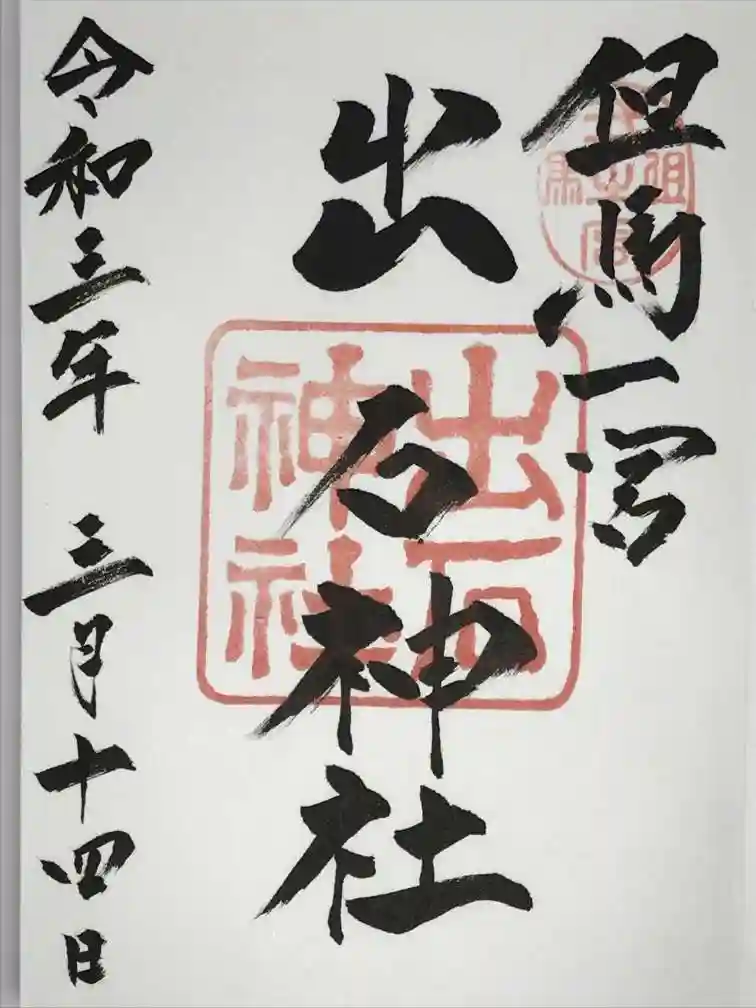 但馬一宮
出石神社
令和三年 三月十四日
出石
神社